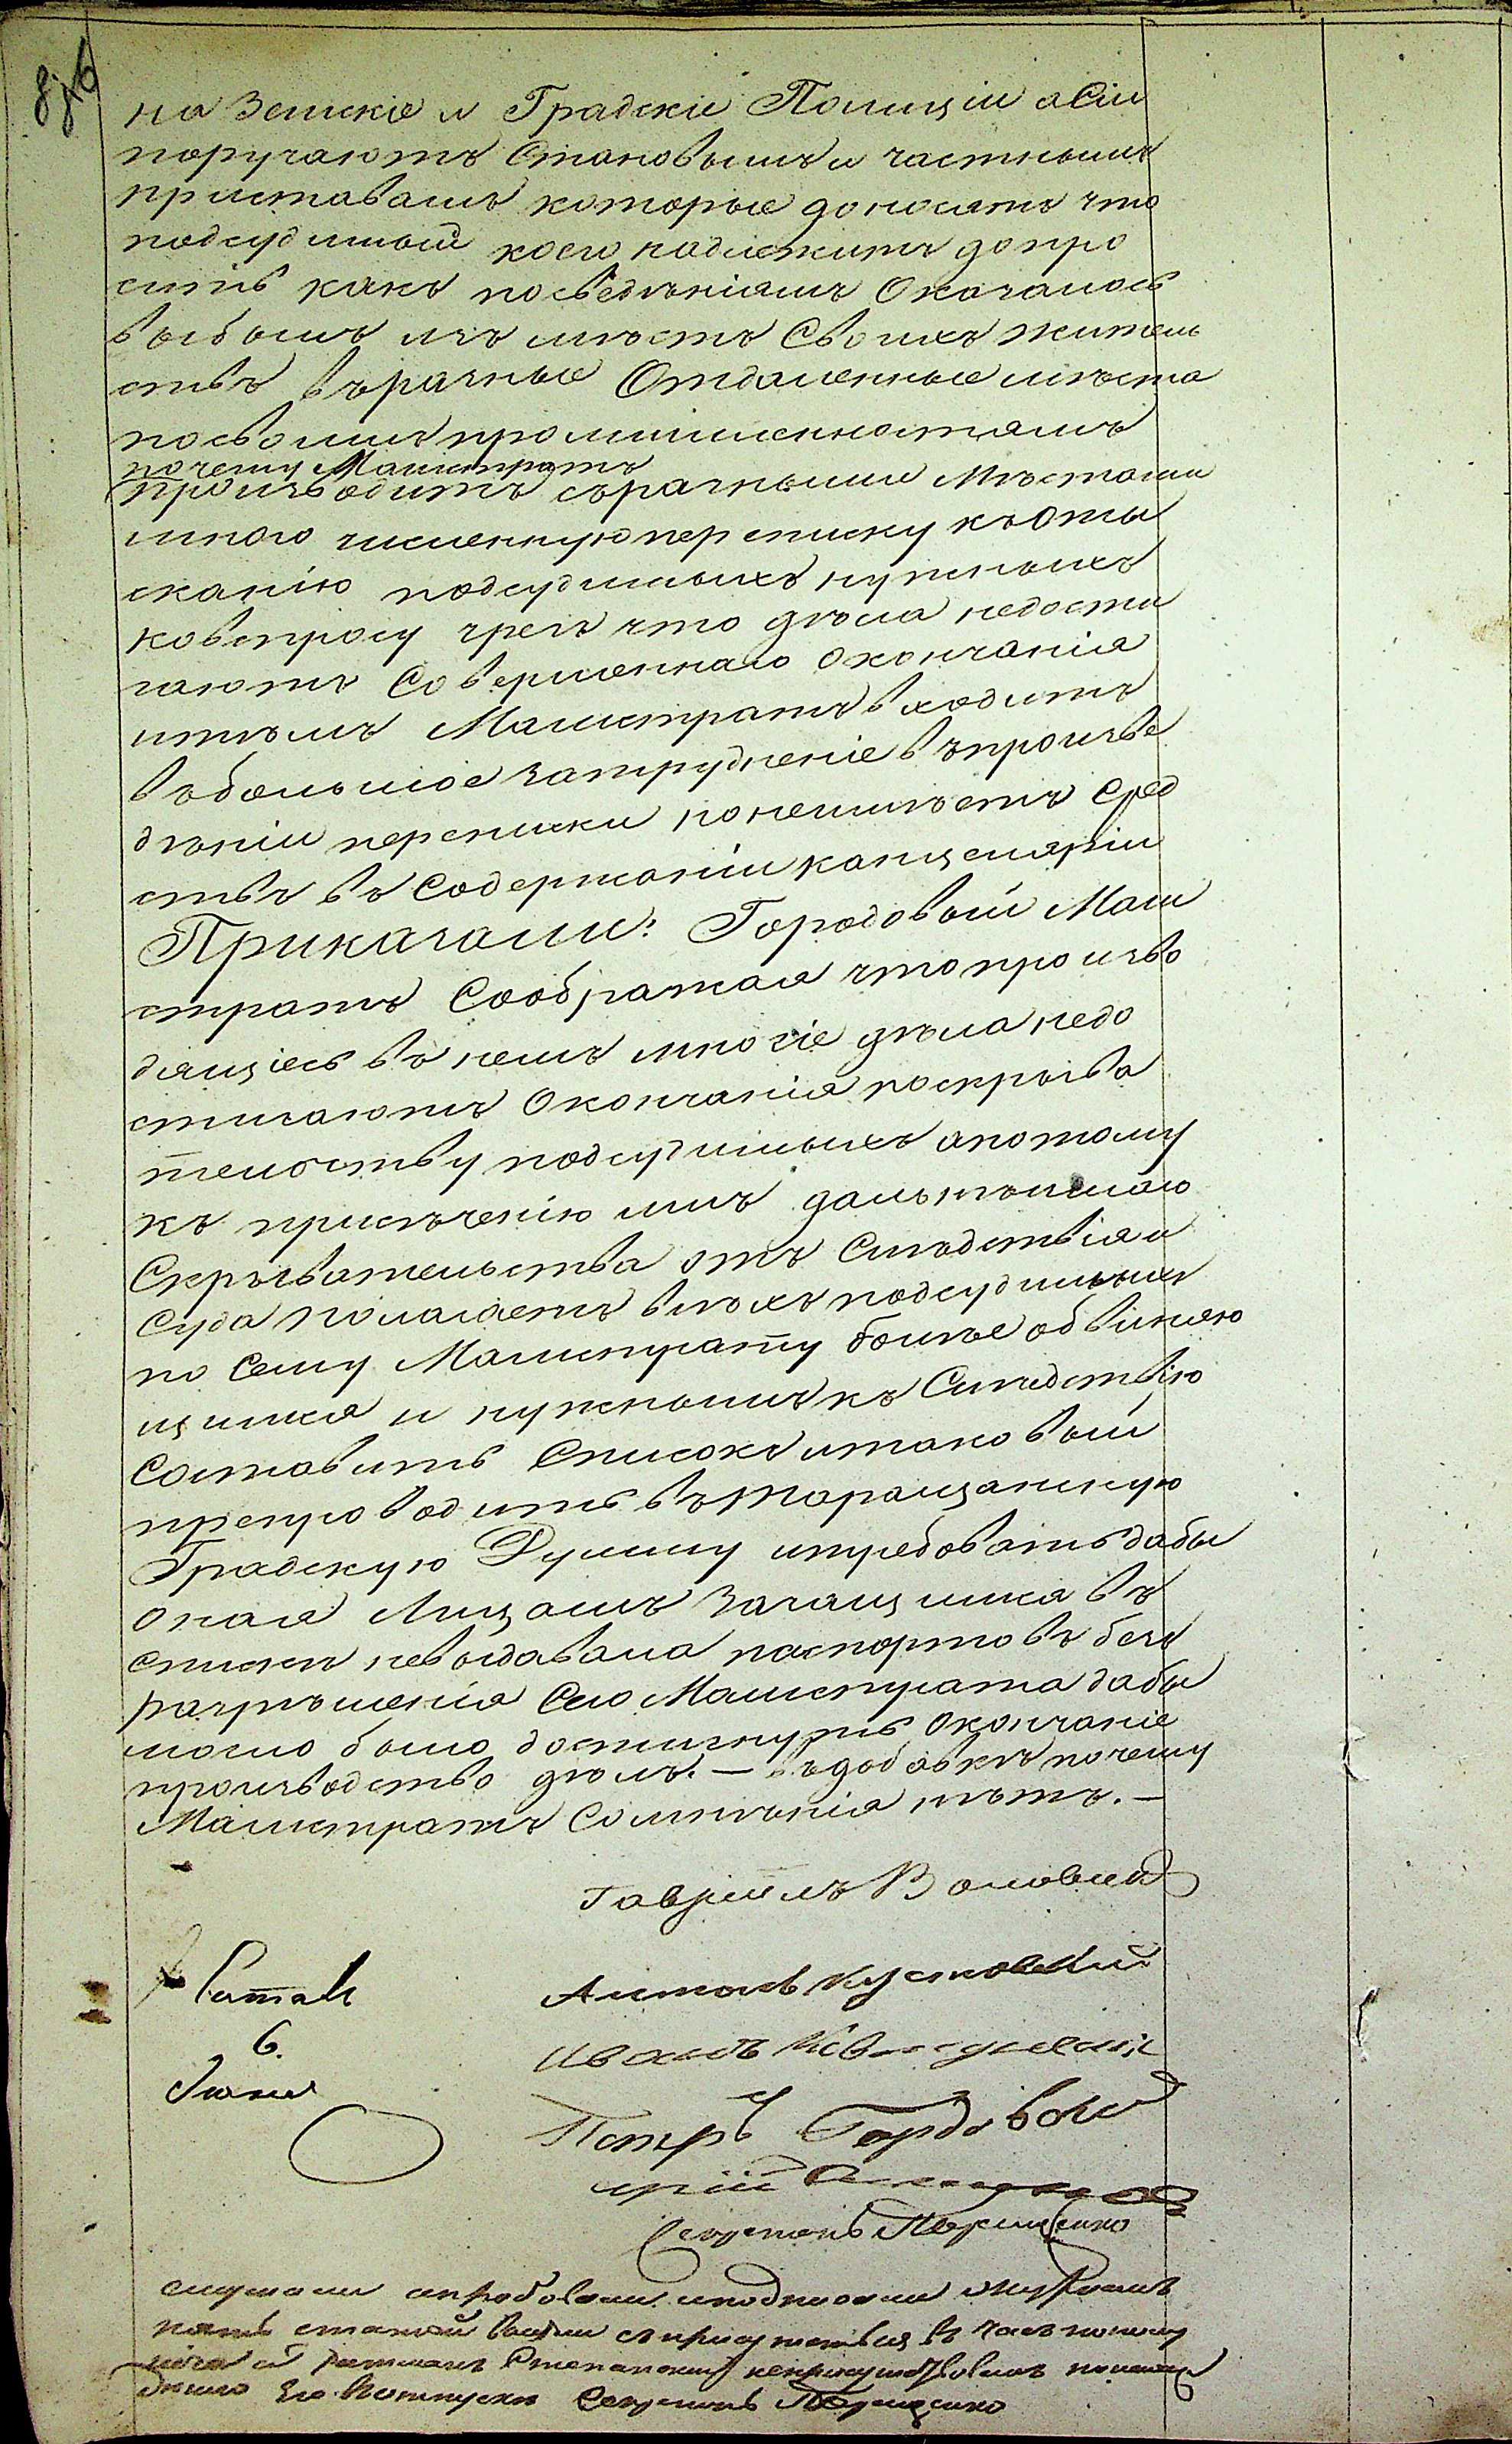 на Земскіе и Градскіе Полиціи а Сіи
поручаютъ Становымъ и частнымъ
приставамъ которые доносятъ что
подсудимый коего надлежитъ допро
сить какъ посведѣніямъ Оказалось
выбылъ изъ мѣстъ Своихъ житель
ствъ въразные Отдаленные мѣста
посвоимъ промышленностямъ
почему Магистратъ
производитъ съразными Мѣстами
много численную переписку къ Оты
сканію подсудимыхъ нужныхъ
ковспросу чрезъ что дѣла недости
гаютъ Совершеннаго Окончанія
итѣмъ Магистратъ входитъ
въбольшое затрудненіе въпроизве
дѣніи переписки понеимѣетъ Сред
ствъ въ Содержаніи канцеляріи
Приказали: Городовый Маги
стратъ Соображая что произво
дящіесь въ немъ многіе дѣла недо
стигаютъ Окончанія поскрыва
тельству подсудимыхъ апотому
къ присѣченію имъ дальнѣйшаго
Скрывательства отъ Слѣдствія и
Суда полагаетъ всѣхъ подсудимыхъ
по Сему Магистрату болѣе обвиняю
щимся и нужнымъ къ Слѣдствію
Составить Списокъ итаковый
препроводить въ Таращанскую
Градскую Думу итребовать дабы
оная Лицамъ Значащимся въ
списки невыдавала паспортовъ безъ
разрѣшенія Сего Магистрата дабы
могло было достигнуть Окончаніе
производство дѣлъ. — въдобавкѣ почему
Магистратъ Сомнѣнія нѣтъ. —
Гавріилъ
Антонъ
6.
Іюня
Иванъ
Петръ Гордовой
Секретарь
слушали апробовали иподписали
Ратманъ Степанскій неприсутствовалъ
Секретарь